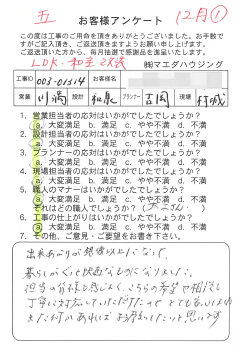 五 お客様アンケート 12月①
この度は工事のご用命を頂きありがとうございました。お手数で
すがご記入頂き、ご返送頂きますようお願い申し上げます。
ご返送頂いた方から、毎月抽選で感謝品を進呈いたします。
LDK・和室改装 ㈱マエダハウジング
工事ID 003-01514 お客様名
営業 川満 設計 和泉 プランナー 吉岡 現場 打成
1. 営業担当者の対応はいかがでしたでしょうか？
a. 大変満足 b. 満足 c. やや不満 d. 不満
2. 設計担当者の対応はいかがでしたでしょうか？
a. 大変満足 b. 満足 c. やや不満 d. 不満
3. プランナーの対応はいかがでしたでしょうか？
a. 大変満足 b. 満足 c. やや不満 d. 不満
4. 現場担当者の対応はいかがでしたでしょうか？
a. 大変満足 b. 満足 c. やや不満 d. 不満
5. 職人のマナーはいかがでしたでしょうか？
a. 大変満足 b. 満足 c. やや不満 d. 不満
それはどの職人でしょうか？
6. 工事の仕上がりはいかがでしたでしょうか？
a. 大変満足 b. 満足 c. やや不満 d. 不満
7. その他、ご意見・ご要望をお書き下さい。
出来あがりが想像以上によくて、
暮らしがぐっと快適なものになりました。
担当の皆様も感じよく、こちらの希望や相談も
丁寧に対応していただけたので とても
また何かあれば お願いしたいと思います